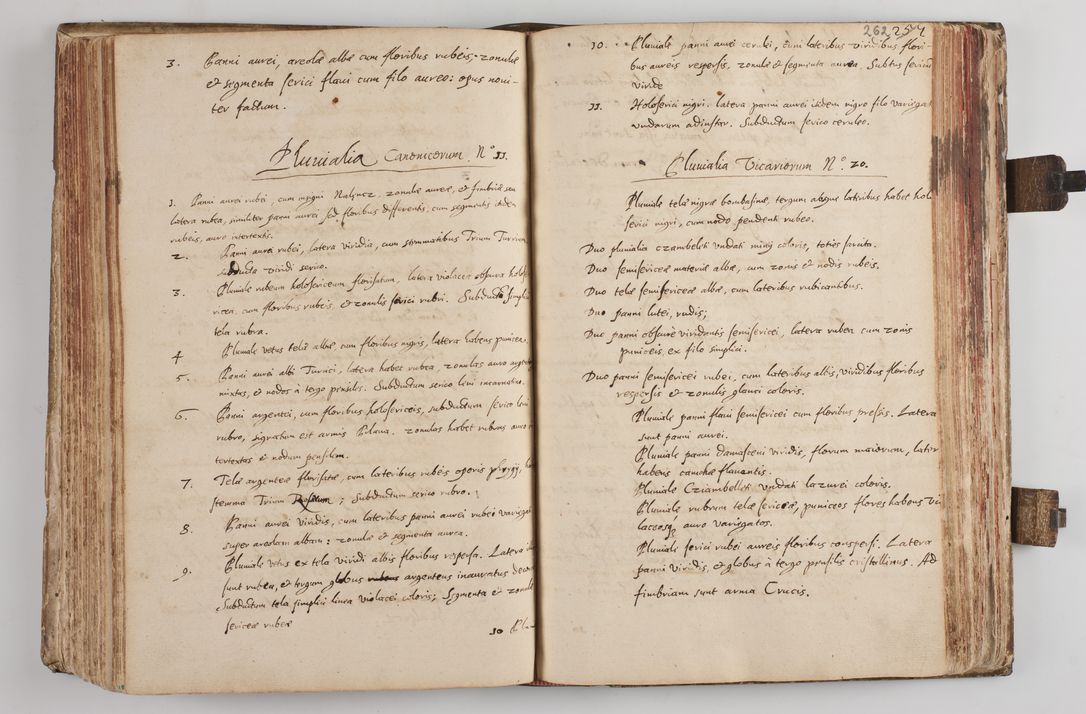 3. Panni aurei, areolæ albæ cum floribus rubeis; zonulæ
et segmenta serici flavi cum filo aureo: opus novi-
ter factum.
Pluvialia Canonicorum N° 11.
1. Panni aurei rubei, cum insigni Nalęncz. zonulæ aureæ, et fimbriæ seu
latera rubea, similiter panni aurei sed floribus differentis; cum segmentis itidem
rubeis, auro intertextis.
2. Panni aurei rubei, latera viridia, cum stemmatibus Trium Turrium
subducta viridi serico.
3. Pluviale rubeum holosericeum florisatum, latera violacea obscura holose
ricea, cum floribus rubeis, et zonulis serici rubri. Subductum simplici
tela rubra.
4 Pluviale vetus telæ albæ, cum floribus nigris, latera habens punicea.
5. Panni aurei albi Turcici, latera habet rubea, zonulas auro argento
mixtas, et nodos à tergo pensiles. Subductum serico leni incarnatino.
6. Panni argentei, cum floribus holosericeis, subductum serico leni
rubro, signatum est armis Pilava. zonulas habet rubras auro in
tertextas et nodum pensilem.
7. Telæ argenteæ florisatæ, cum lateribus rubeis operis phrygij,
stemma Trium ; Subductum serico rubro.
8. Panni aurei viridis, cum lateribus panni aurei rubei variega
super areolam albam: zonulæ et segmenta aurea.
9. Pluviale vetus ex tela viridi albis floribus respersa. Latera
sunt rubea, et tergum, globus argenteus inauratus
Subductum tela simplici linea violacei coloris; Segmenta et zonulæ
sericeæ rubeæ
10 Plu-
262 257
10. Pluviale panni aurei cerulei, cum lateribus viridibus flori-
bus aureis respersis, zonulæ et segmenta aurea. Subtus sericum
viride
11. Holoserici nigri. latera panni aurei itidem nigro filo variegat
undarum adinstar. Subductum serico ceruleo.
Pluvialia Vicariorum N° 20.
Pluviale telæ nigræ bombasinæ, tergum absque lateribus habet holo
serici nigri, cum nodo pendenti rubeo.
Duo pluvialia czambeleti undati minij coloris, toties sarcita.
Duo semisericeæ materiæ albæ, cum zonis et nodis rubeis.
Duo telæ semisericeæ albæ, cum lateribus rubicantibus.
Duo panni lutei, rudis;
Duo panni obscure viridantis semiserici, latera rubea cum zonis
puniceis, ex filo simplici.
Duo panni semisericei rubei, cum lateribus albis, viridibus floribus
respersis et zonulis glauci coloris.
Pluviale panni flavi semisericei cum floribus pressis. Latera
sunt panni aurei.
Pluviale panni damasceni viridis, florum maiorum, later
habens canchæ flavantis.
Pluviale Cziambelleti undati lazurei coloris.
Pluviale rubrum telæ sericeæ, puniceos flores habens vi
laceosq auro variegatos.
Pluviale serici rubei aureis floribus conspersi. Latera
panni viridis, et globus à tergo pensilis cristallinus. Ad
fimbriam sunt arma Crucis.